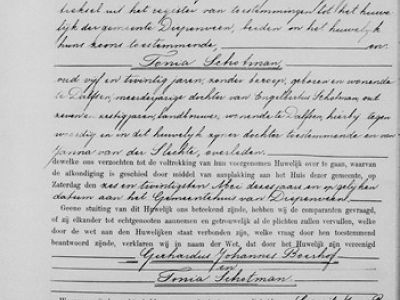 treksel uit het register van toestemmingen tot het huwe
lijk der gemeente Diepenveen, beiden en het huwelijk
huns zoons toestemmende, en
Tonia Schotman
oud vijf en twintig jaren, zonder beroep, geboren en wonende
te Dalfsen, meerderjarige dochter van Engelbertus Schotman, oud
zeven en zestig jaren, landbouwer, wonende te Dalfsen, hierbij tegen
woordig en in dit huwelijk zijner dochter toestemmende en van
Janna van der Slechte, overleden.
dewelke ons verzochten tot de voltrekking van hun voorgenomen Huwelijk over te gaan, waarvan
de afkondiging is geschied door middel van aanplakking aan het Huis dezer gemeente, op
Zaterdag den zes en twintigsten Mei dezes jaars en op gelyken
datum aan het Gemeentehuis van Diepenveen.
Geene stuiting van dit Huwelijk ons beteekend zijnde, hebben wij de comparanten gevraagd,
of zij elkander tot echtgenooten aannemen en getrouwelijk al de plichten zullen vervullen, welke
door de wet aan den Huwelijken staat verbonden zijn, welke vraag door hen toestemmend
beantwoord zijnde, verklaren wij in naam der Wet, dat door het Huwelijk zijn vereenigd
Gerhardus Johannes Boerhof
en
Tonia Schotman.